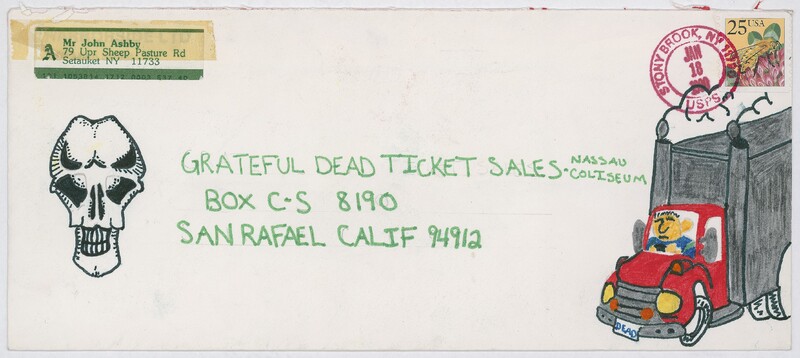 A Mr John Ashby
79 Upr Sheep Pasture Rd
Setauket NY 11733
25 USA
STONY BROOK, NY
JAN
18
USPS
GRATEFUL DEAD TICKET SALES- NASSAU COLISEUM
BOX C-S 8190
SAN RAFAEL CALIF 94912
DEAD